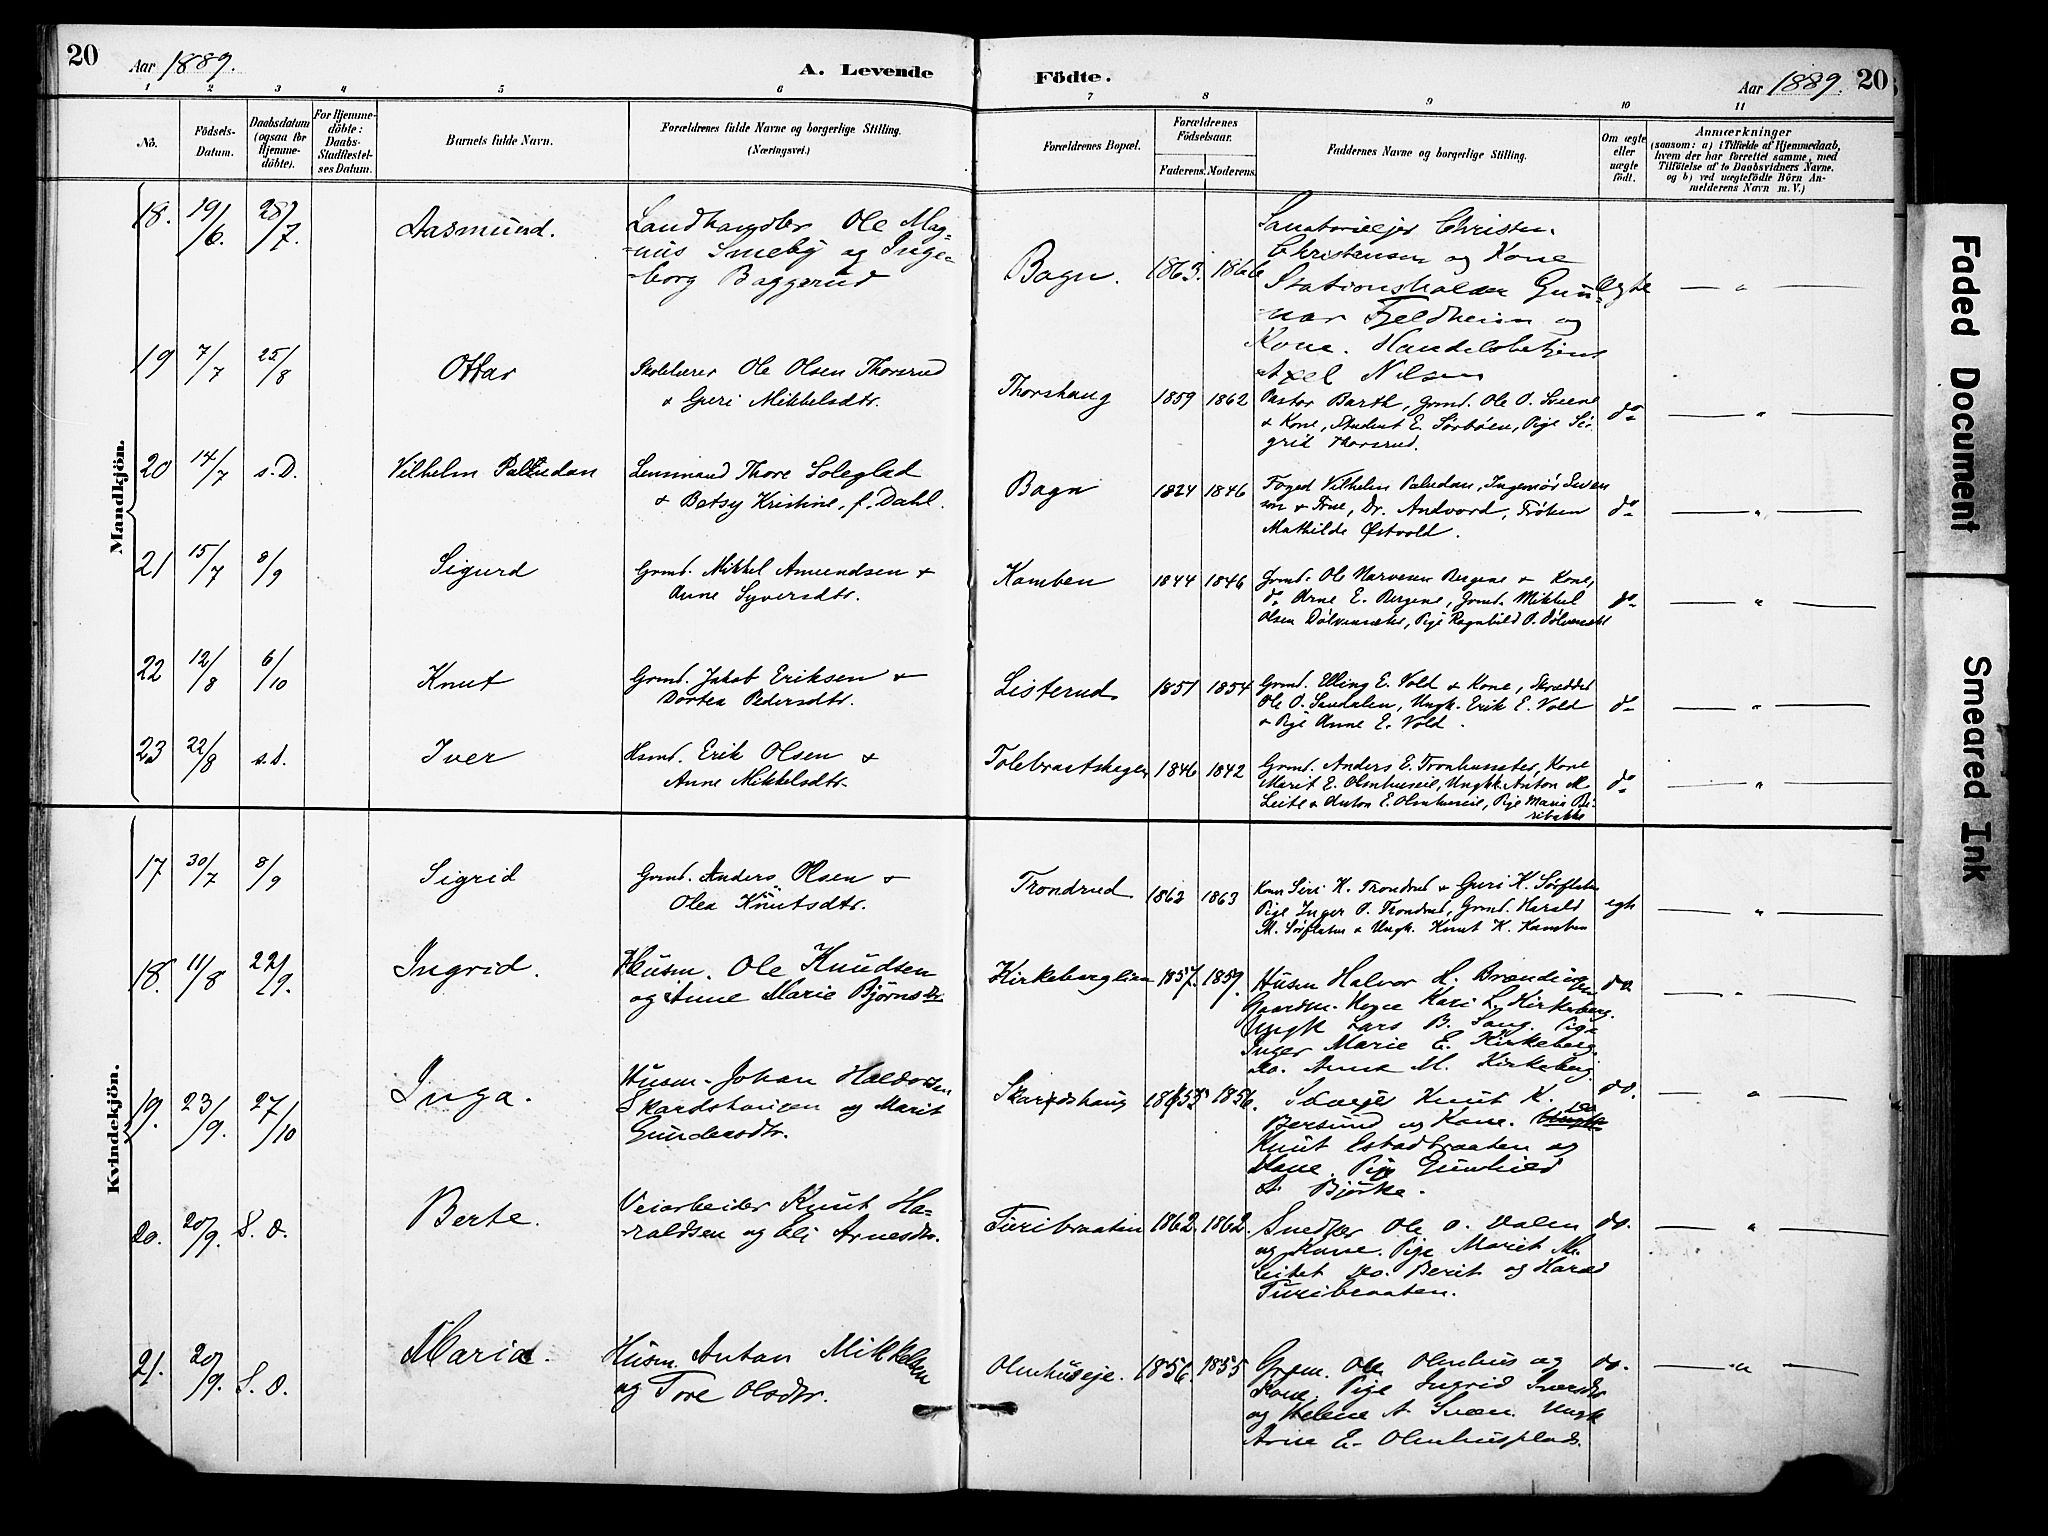 20
Aar 1889.
A. Levende
Födte.
Aar 1889. 20
1 2 3 4 5 6 7 8 9 10 11
No.
Födsels-
Datum.
Daabsdatum
(ogsaa for
Hjemme-
döbte).
For Hjemme-
döbte:
Daabs-
Stadfæstel-
ses Datum.
Barnets fulde Navn.
Forældrenes fulde Navne og borgerlige Stilling.
(Næringsvei.)
Forældrenes Bopæl.
Forældrenes
Födselsaar.
Faderens. Moderens.
Faddernes Navne og borgerlige Stilling.
Om ægte
eller
uægte
födt.
Anmærkninger
(saasom: a) i Tilfælde af Hjemmedaab,
hvem der har forrettet samme, med
Tilföielse af to Daabsvidners Navne.
og b) ved uægtefödte Börn An-
melderens Navn m. V.)
Mandkjön.
18. 19/6. 28/7. Aasmund.
Landhandler Ole Mag-
nus Smeby og Inge-
borg Baggerud
Bagn. 1863. 1866
Sanatorieejer Christen
Christensen og Kone
Stationsholder Gun-
nar Fjeldheim og
Kone. Handelsbetjent
Axel Nilsen
Ægte — " —
19 7/7 25/8 Ottar
Skolelærer Ole Olsen Thorsrud
& Guri Mikkelsdtr.
Thorshaug 1859 1862
Pastor Barth, Grmd. Ole O. Sveene
& Kone, Student E. Sørbøen, Pige Si-
grid Thorsrud.
do — " —
20 14/7 s.D. Vilhelm Paludan
Lensmand Thore Soleglad
& Betsy Kristine, f. Dahl.
Bagn 1824 1846
Foged Vilhelm Paludan, Ingeniør Sven
son & Frue, Dr. Andvord, Frøken
Mathilde Østvold.
do — " —
21 15/7 8/9 Sigurd
Grmd. Mikkel Amundsen &
Anne Syversdtr.
Kamben 1844 1846
Grmd. Ole Narvesen Bergene & Kone,
do Arne E. Bergene, Grmd. Mikkel
Olsen Dølvesæter, Pige Ragnhild O. Dølvesæt
do — " —
22 12/8 6/10 Knut
Grmd. Jakob Eriksen &
Dortea Pedersdtr.
Listerud 1851 1854
Grmd. Elling E. Vold & Kone, Skrædder
Ole O. Sandalen, Ungk. Erik E. Vold
& Pige Anne E. Vold.
do — " —
23 22/8 s.D. Iver
Hsmd. Erik Olsen &
Anne Mikkelsdtr.
Tolebraatshagen 1846 1842
Grmd. Anders E. Tronhussæter, Kone
Marit E. Olmhuseie, Ungk. Anton M
Leite & Anton E. Olmhuseie, Pige Marie Be-
ribakke
do — " —
Kvindekjön.
17 30/7 8/9 Sigrid
Grmd. Anders Olsen &
Olea Knutsdtr.
Trondrud 1862 1863
Kone Siri K. Trondrud & Guri K. Sørflaten
Pige Inger O. Trondrud, Grmd. Harald
M. Sørflaten & Ungk. Knut K. Kamben
egte — " —
18. 11/8 22/9. Ingrid.
Husm. Ole Knudsen
og Anne Marie Bjørnsdtr
Kirkeberglien 1857. 1859.
Husm Halvor H. Brændingen
Gaardm. Kari L. Kirkeberg.
Ungk Lars B. Sang. Pige
Inger Marie E. Kirkeberg.
Do. Anna M. Kirkeberg.
do. — " —
19. 23/9. 27/10 Inga.
Husm. Johan Haldorsen
Skardshaugen og Marit
Gundersdtr.
Skardshaug 1855 1856.
Knut K.
Bersund og Kone. Do
Knut Islandbraaten og
Kone. Pige Gunhild
A. Bjørke.
do. — " —
20. 20/9. S. D. Berte.
Veiarbeider Knut Ha-
raldsen og Eli Arnesdtr.
Turibraaten 1862. 1862.
Snedker Ole O. Dalen
og Kone. Pige Marit M.
Leitet Do. Berit og Harald
Turibraaten.
do. — " —
21. 20/9. S. D. Maria.
Husm. Anton Mikkelsen
og Tore Olsdtr.
Olmhuseje. 1856. 1855
Grdm. Ole Olmhus og
Kone. Pige Ingrid Iversdtr
og Helene A. Sveen. Ungk
Arne E. Olmhusplads.
do. — " —
Faded Document
Smeared Ink